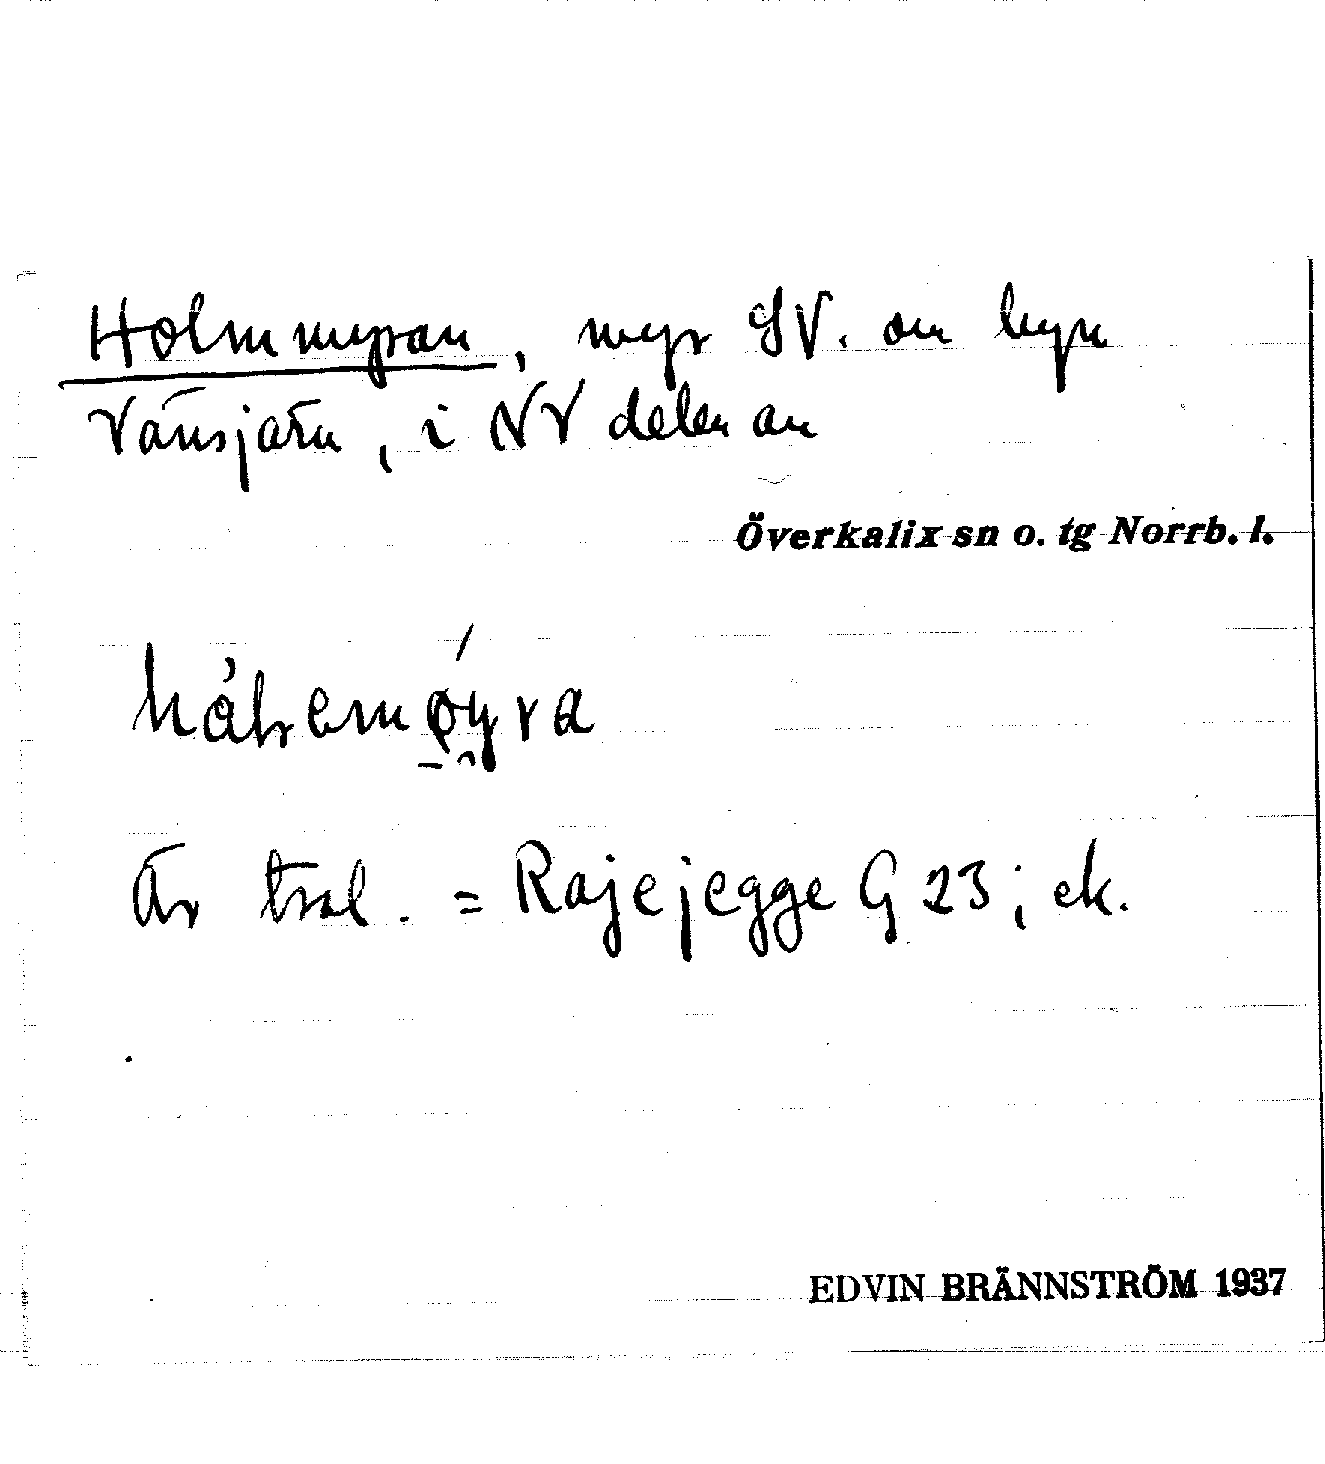 Holmmyran, myr SV. om byn
Vänsjärn, i NV delen av
Överkalix sn o. tg Norrb. l.
Är tral. = Rajejegge G 23; ek.
EDVIN BRÄNNSTRÖM 1937